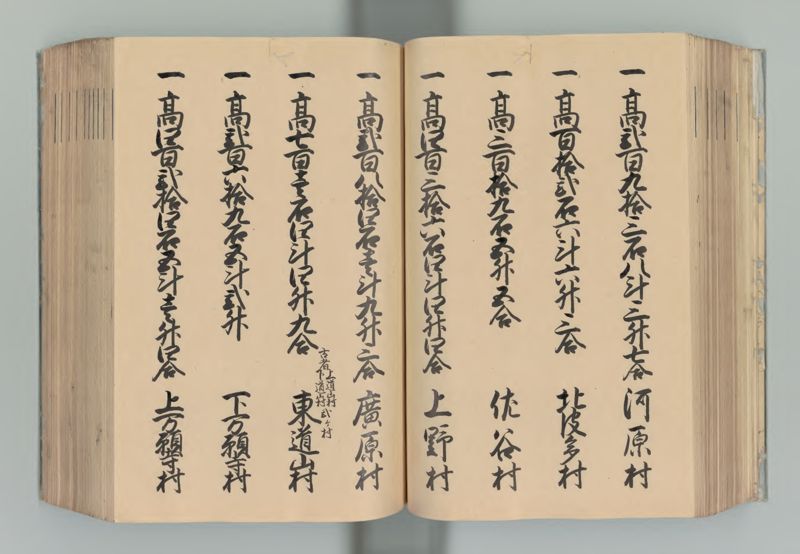 一 高弐百九拾三石八斗三升七合 河原村
一 高百拾弐石六斗六升三合 北波多村
一 高三百拾九石五升五合 佐谷村
一 高四百三拾六石四斗四升四合 上野村
一 高弐百八拾四石壱斗九升三合 廣原村
一 高七百壱石四斗四升九合 古者上道山村下道山村弐ケ村 東道山村
一 高弐百六拾九石五斗弐升 下万願寺村
一 高四百弐拾四石五斗壱升四合 上万願寺村